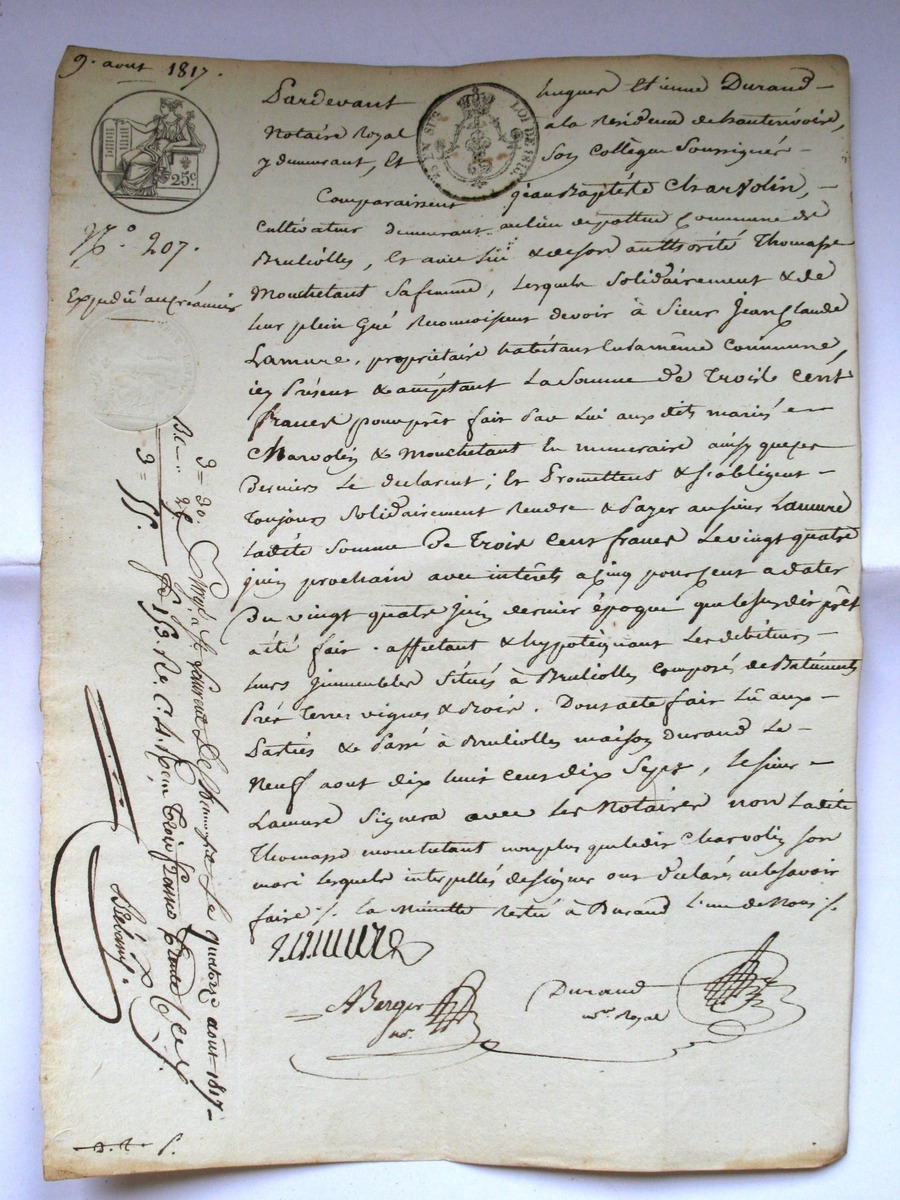 9. aout 1817.
25c.
LOI DE 1816
N.o 207.
Expedié au créancier
Pardevant hugues Etienne Durand
Notaire Royal a la Residence de hauterivoire,
y demeurant, Et Son Collègue Soussignés
Comparaissent jean Baptiste Charvolin,
Cultivateur demeurant au lieu de pottu Commune de
Brulioles, Et avec lui & de son authorité Thomasse
Mouchetant Sa femme, lesquels Solidairement & de
leur plein Gré Reconnoissent devoir à Sieur Jean Claude
Lamure, propriétaire habitant Enla même Commune,
icy Présent & acceptant La Somme De Trois Cent
francs pour prêt fait Par Lui aux dits mariés
Charvolin & Mouchetant En numeraire ainsy que ces
Derniers Le declarent; Et Promettent & s'obligent
Toujours Solidairement Rendre & Payer au sieur Lamure
Ladite Somme De Trois Cent francs Le vingt quatre
juin prochain avec intérêts a Cinq pour Cent a dater
Du vingt quatre juin dernier époque que le susdit prêt
a été fait. affectant & hypotéquant Les debiteurs
leurs jmmeubles Situés à Brulioles composé de Batiments
Prés Terres vignes & Bois. Dont acte fait Lu aux
Parties & Passé à Brulioles maison Durand Le
Neuf aout dix huit cent dix Sept, le sieur
Lamure Signera avec les Notaires non Ladite
Thomasse mouchetant non plus que ledit Charvolin son
mari lesquels interpellés de signer ont déclarés ne le savoir
faire ./. La Minute Restée à Durand L'un de Nous ./.
Lamure
ABerger
Durand
no.re Royal
3 = 30.
3 =
Enreg.é a St. Laurent De le quatorze août 1817
f.o 153. R.o C. 4. Reçu Trois francs trente C.es